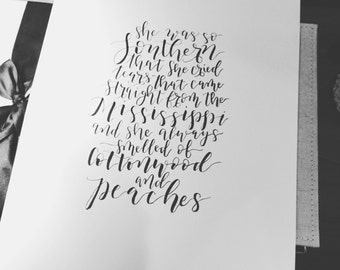 she was so
Southern
that she cried
tears that came
straight from the
Mississippi
and she always
smelled of
Cottonwood
and
peaches